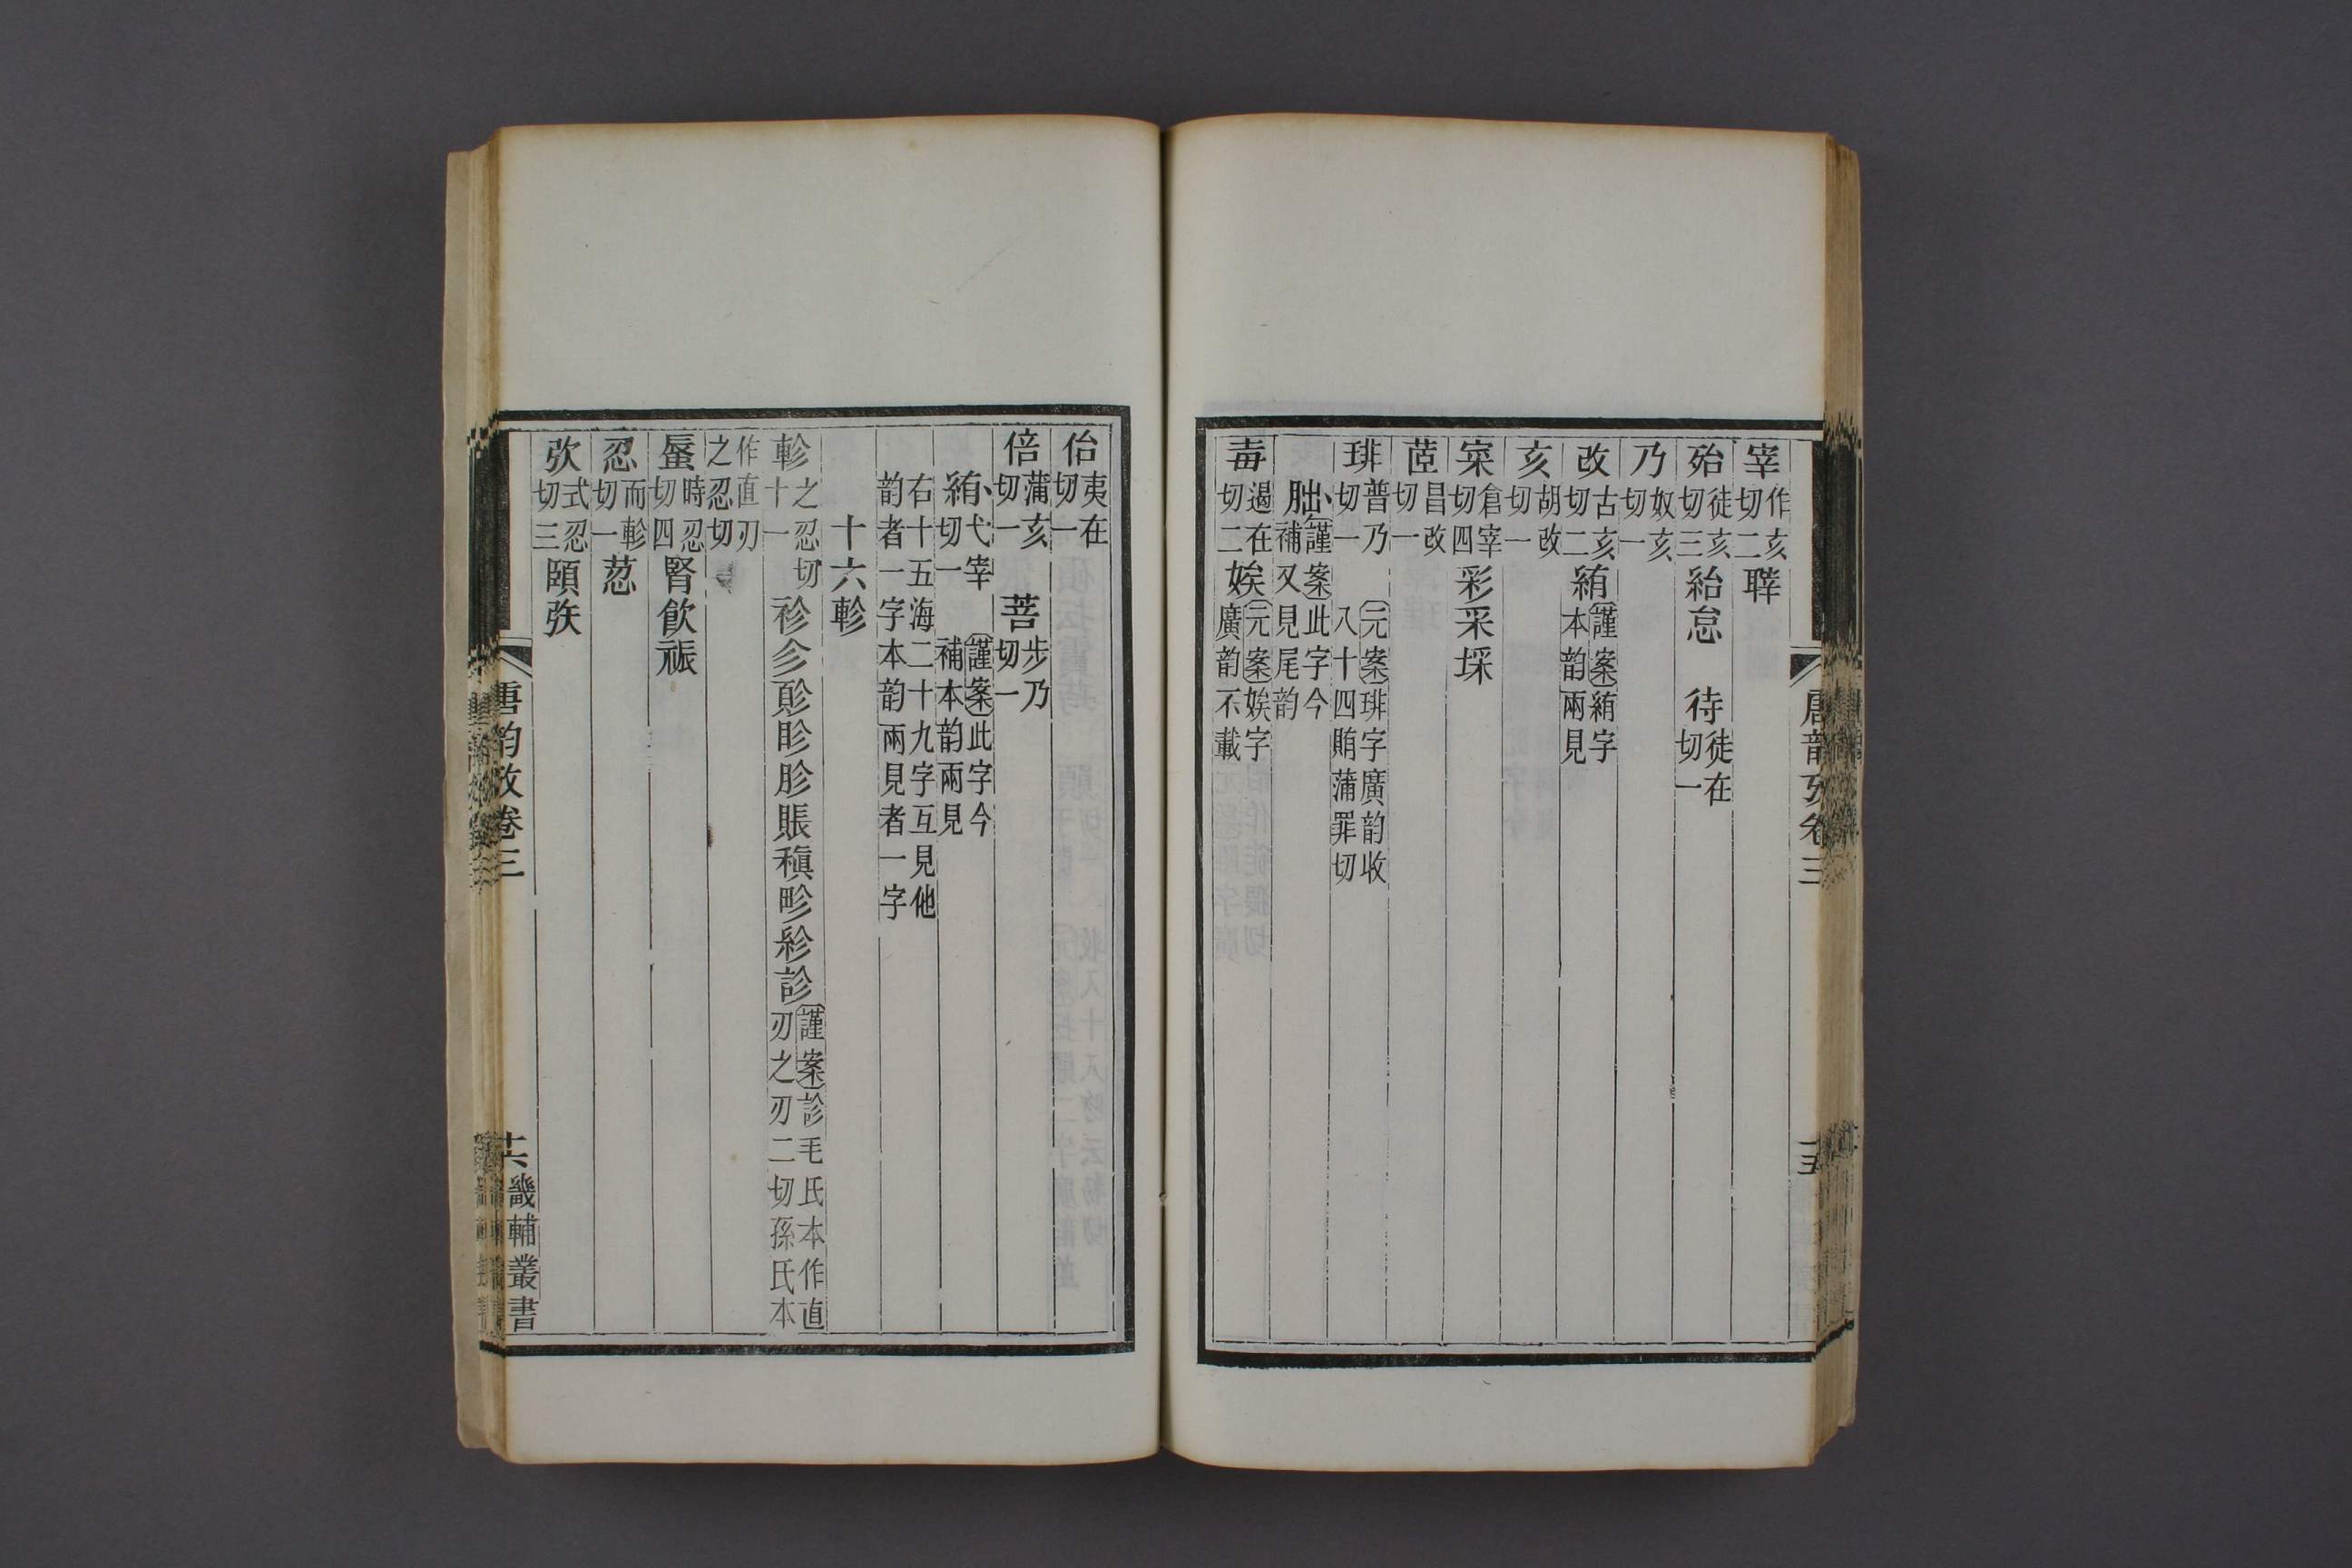 宰作亥切二䏁
殆徒亥切三紿怠　待徒在切一
乃奴亥切一
改古亥切二絠謹案絠字本韵兩見
亥胡改切一
寀倉宰切四彩采埰
茝昌改切一
琲普乃切一　元案琲字廣韵收八十四賄蒲罪切
朏謹案此字今補又見尾韵
毐遏在切二娭元案娭字廣韵不載
唐韵攷卷三
十五
佁夷在切一
倍蒲亥切一　菩步乃切一
絠弋宰切一　謹案此字今補本韵兩見
右十五海二十九字互見他韵者一字本韵兩見者一字
十六軫
軫之忍切十一袗㐱㱽眕胗賬稹畛紾診謹案診毛氏本作直刃之刃二切孫氏本
作直刃之忍切
蜃時忍切四腎㱃祳
忍而軫切一荵
弞式忍切三頤矤
唐韵攷卷三
十六
畿輔叢書